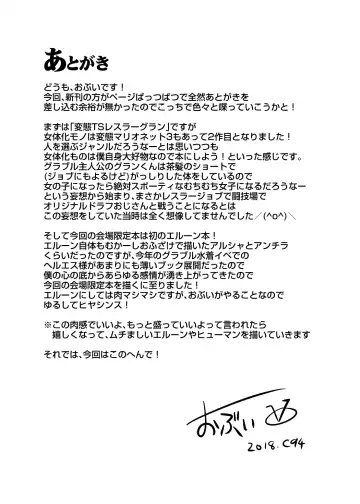 あとがき
どうも、おぶいです！
今回、新刊の方がページぱっつぱつで全然あとがきを
差し込む余裕が無かったのでこっちで色々と喋っていこうかと！
まずは「変態TSレスラーグラン」ですが
女体化モノは変態マリオネット3もあって2作目となりました！
人を選ぶジャンルだろうなーとは思いつつも
女体化ものは僕自身大好物なので本にしよう！といった感じです。
グラブル主人公のグランくんは茶髪のショートで
(ジョブにもよるけど)がっしりした体をしているので
女の子になったら絶対スポーティなむちむち女子になるだろうなー
という妄想から始まり、まさかレスラージョブで闘技場で
オリジナルドラフおじさんと戦うことになるとは
この妄想をしていた当時は全く想像してませんでした／(^o^)＼
そして今回の会場限定本は初のエルーン本！
エルーン自体もむかーしおふざけで描いたアルシャとアンチラ
くらいだったのですが、今年のグラブル水着イベでの
ヘルエス様があまりにも薄いブック展開だったので
僕の心の底からあらゆる感情が湧き上がってきたので
今回の会場限定本を描くに至りました！
エルーンにしては肉マシマシですが、おぶいがやることなので
ゆるしてヒヤシンス！
※この肉感でいいよ、もっと盛っていいよって言われたら
嬉しくなって、ムチましいエルーンやヒューマンを描いていきます
それでは、今回はこのへんで！
おぶい
2018.C94